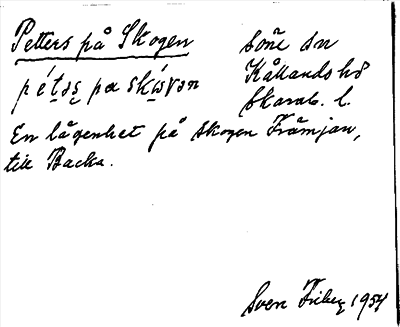 Petters på Skogen
Söne sn
pét̠əs̠ pa skώ̠vən
Kållands hd
Skarab. l.
En lägenhet på skogen Främjan,
till Backa.
Sven Friberg 1954